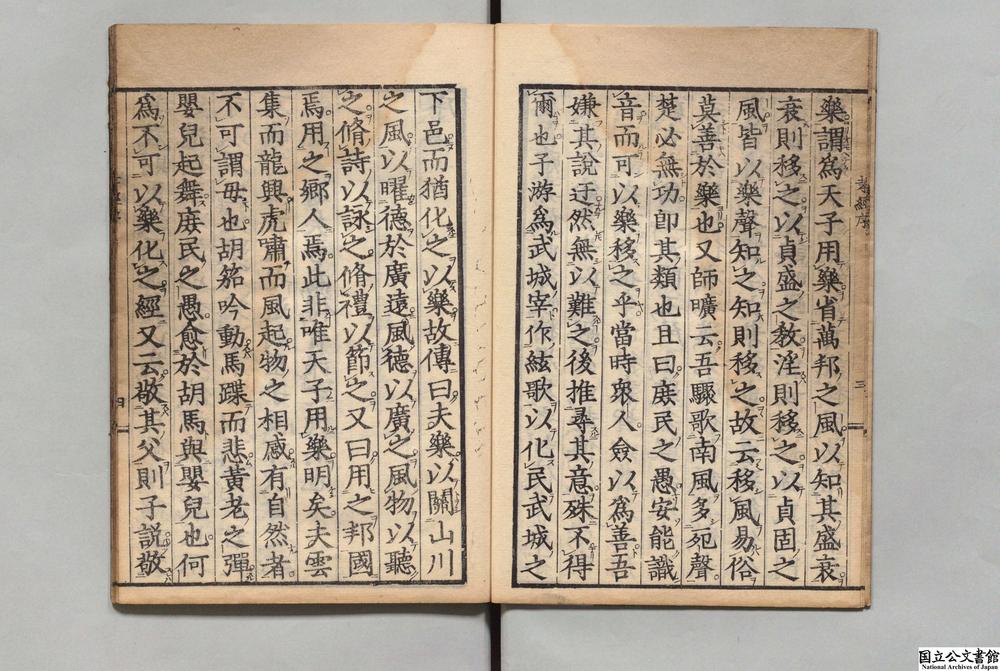 樂謂爲天子用樂省萬邦之風以知其盛衰
衰則移之以貞盛之教淫則移之以貞固之
風皆以樂聲知之知則移之故云移風易俗
莫善於樂也又師曠云吾驟歌南風多死聲
楚必無功卽其類也且曰庻民之愚安能識
音而可以樂移之乎當時衆人僉以爲善吾
嫌其說迂然無以難之後推尋其意殊不得
爾也子游爲武城宰作絃歌以化民武城之
下邑而猶化之以樂故傳曰夫樂以關山川
之風以曜德於廣遠風德以廣之風物以聽
之脩詩以詠之脩禮以節之又曰用之邦國
焉用之鄕人焉此非唯天子用樂明矣夫雲
集而龍興虎嘯而風起物之相感有自然者
不可謂毋也胡笳吟動馬蹀而悲黃老之彈
嬰兒起舞庻民之愚愈於胡馬與嬰兒也何
爲不可以樂化之經又云敬其父則子說敬
三
四
国立公文書館
National Archives of Japan